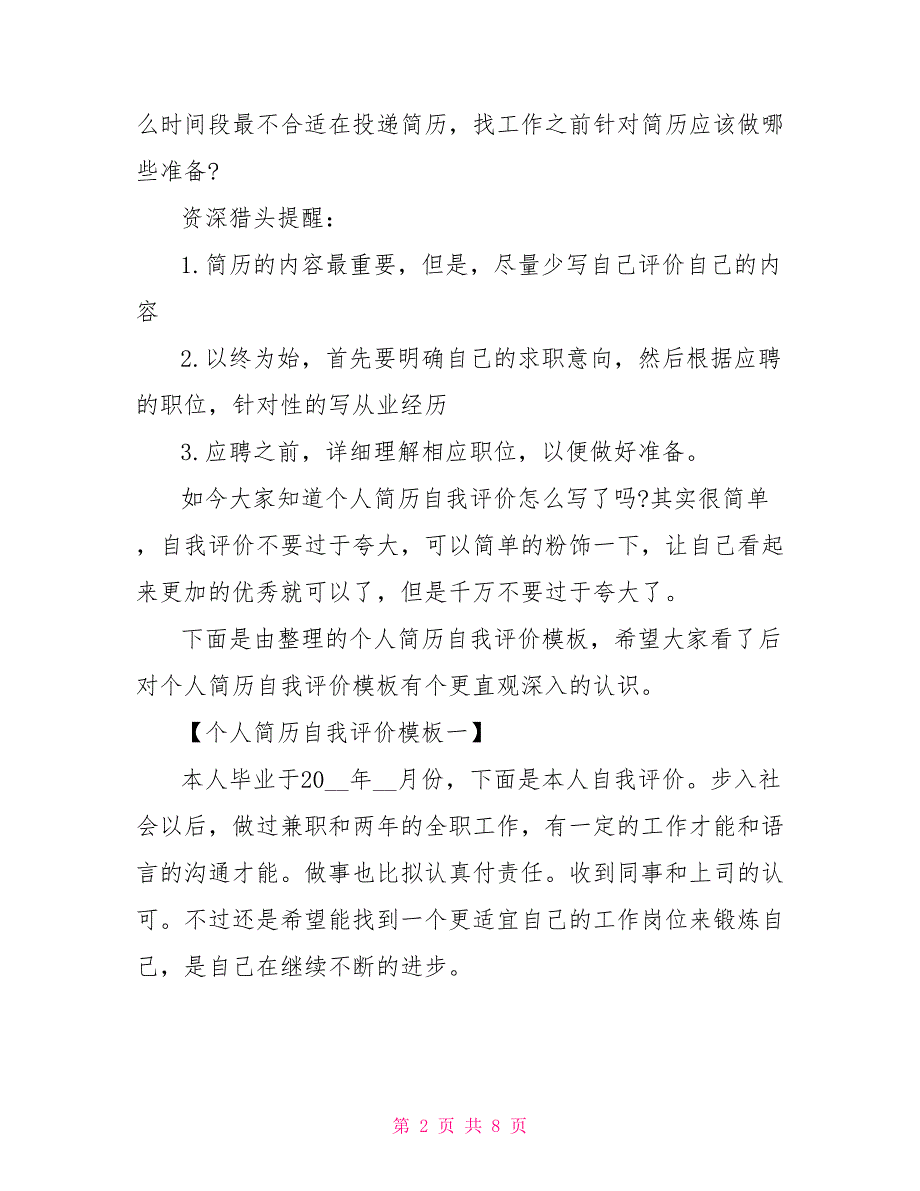 么时间段最不合适在投递简历，找工作之前针对简历应该做哪
些准备?
资深猎头提醒：
1.简历的内容最重要，但是，尽量少写自己评价自己的内
容
2.以终为始，首先要明确自己的求职意向，然后根据应聘
的职位，针对性的写从业经历
3.应聘之前，详细理解相应职位，以便做好准备。
如今大家知道个人简历自我评价怎么写了吗?其实很简单
，自我评价不要过于夸大，可以简单的粉饰一下，让自己看起
来更加的优秀就可以了，但是千万不要过于夸大了。
下面是由整理的个人简历自我评价模板，希望大家看了后
对个人简历自我评价模板有个更直观深入的认识。
【个人简历自我评价模板一】
本人毕业于20__年__月份，下面是本人自我评价。步入社
会以后，做过兼职和两年的全职工作，有一定的工作才能和语
言的沟通才能。做事也比拟认真付责任。收到同事和上司的认
可。不过还是希望能找到一个更适宜自己的工作岗位来锻炼自
己，是自己在继续不断的进步。
第 2 页 共 8 页